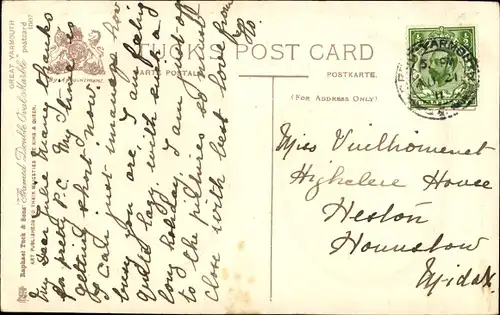 TUCK POST CARD
CARTE POSTALE
POSTKARTE.
(FOR ADDRESS ONLY)
GREAT YARMOUTH
postcard 1007
Raphael Tuck & Sons' "Framed Double Oval Marble"
ART PUBLISHERS TO THEIR MAJESTIES THE KING & QUEEN.
YARMOUTH
21
11
My dear Julie Many thanks
for pretty P.C. My time is
getting short now. How
busy you are, I am feeling
quite lazy with such a
long holiday. I am just off
to the pictures so must
close with best love from
Miss Vuilhomenet
Highclere House
Heston
Hounslow
Midd